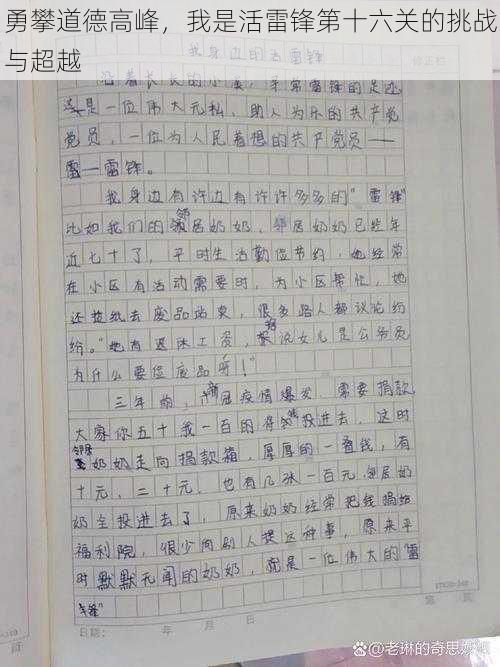 勇攀道德高峰，我是活雷锋第十六关的挑战
与超越
我身边的活雷锋
沿着长长的小溪，寻常雷锋的足迹
这是一位伟大无私、助人为乐的共产党
党员，一位为人民着想的共产党员——
雷—雷锋。
我身边有许边有许许多多的“雷锋”
比如我们的邻居奶奶，邻居奶奶已经年
近七十了，平时生活勤俭节约，她经常
在小区有活动需要时，为小区帮忙，她
还捡纸去废品站卖，很多路人都议论纷
纷。“她有退休工资，据说女儿是公务员
为什么要捡废品呀！”
三年前，新冠疫情爆发，需要捐款
大家你五十我一百的将钱投进去，这时
邻居奶奶走向捐款箱，厚厚的一叠钱，有
十元、二十元、也有几张一百元，邻居奶
奶全投进去了，原来奶奶经常把钱捐给
福利院，很少向别人提这种事，原来平
时默默无闻的奶奶，就是一位伟大的“雷
锋”
日期： 年 月 日
第 页
@老琳的奇思妙想